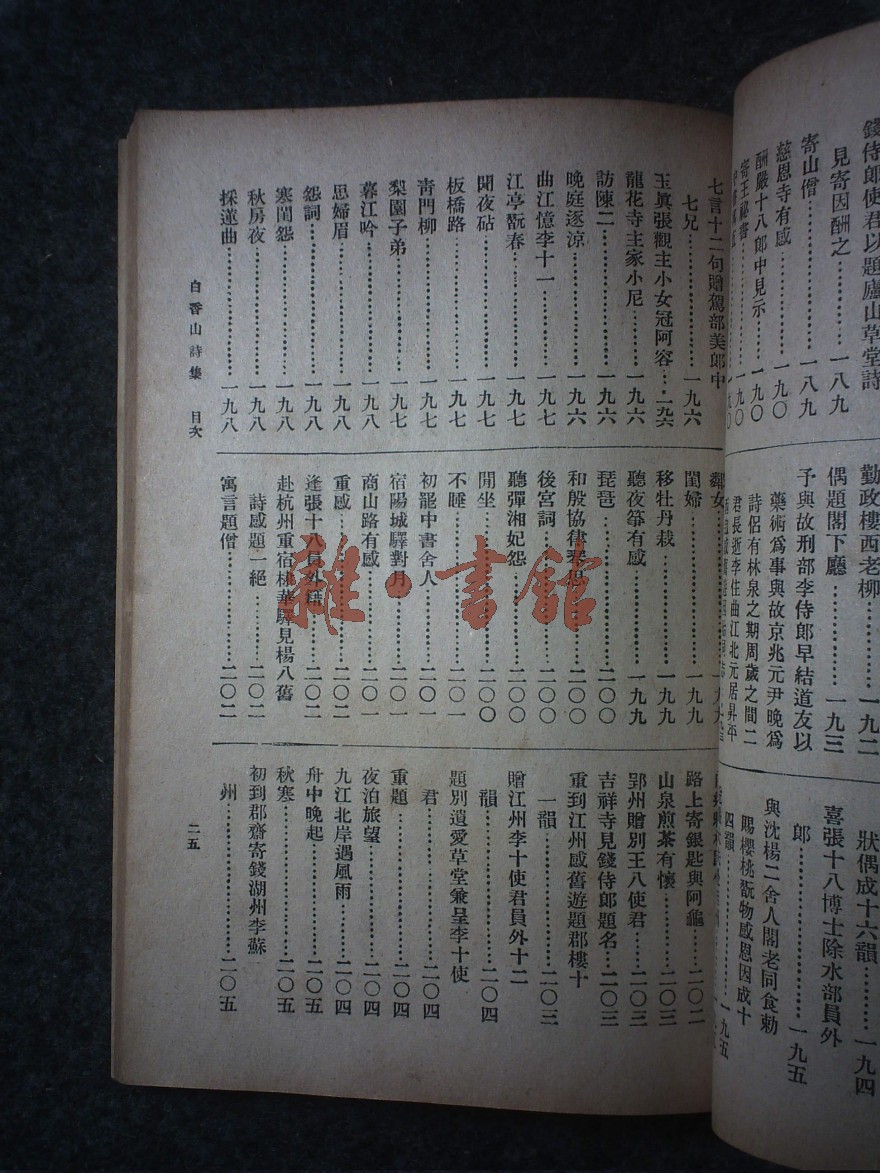 錢侍郎使君以題廬山草堂詩
見寄因酬之……一八九
寄山僧……一八九
慈恩寺有感……一九〇
酬嚴十八郎中見示……一九〇
寄王祕書……一九〇
勤政樓西老柳……一九二
偶題閣下廳……一九三
予與故刑部李侍郎早結道友以
藥術爲事與故京兆元尹晚爲
詩侶有林泉之期周歲之間二
君長逝李住曲江北元居昇平
狀偶成十六韻……一九四
喜張十八博士除水部員外
郎……一九五
與沈楊二舍人閣老同食勅
賜櫻桃翫物感恩因成十
四韻……一九五
七言十二句贈駕部吳郎中
七兄……一九六
玉眞張觀主小女冠阿容…一九六
龍花寺主家小尼……一九六
訪陳二……一九六
晚庭逐涼……一九六
曲江憶李十一……一九七
江亭翫春……一九七
聞夜砧……一九七
板橋路……一九七
靑門柳……一九七
梨園子弟……一九七
暮江吟……一九八
思婦眉……一九八
怨詞……一九八
寒閨怨……一九八
秋房夜……一九八
採蓮曲……一九八
鄰女……一九九
閨婦……一九九
移牡丹栽……一九九
聽夜箏有感……一九九
琵琶……二〇〇
和殷協律琴思……二〇〇
後宮詞……二〇〇
聽彈湘妃怨……二〇〇
閒坐……二〇〇
不睡……二〇一
初罷中書舍人……二〇一
宿陽城驛對月……二〇一
商山路有感……二〇一
重感……二〇二
逢張十八員外籍……二〇二
赴杭州重宿棣華驛見楊八舊
詩感題一絕……二〇二
寓言題僧……二〇二
路上寄銀匙與阿龜……二〇二
山泉煎茶有懷……二〇三
郢州贈別王八使君……二〇三
吉祥寺見錢侍郎題名…二〇三
重到江州感舊遊題郡樓十
一韻……二〇三
贈江州李十使君員外十二
韻……二〇四
題別遺愛草堂兼呈李十使
君……二〇四
重題……二〇四
夜泊旅望……二〇四
九江北岸遇風雨……二〇四
舟中晚起……二〇五
秋寒……二〇五
初到郡齋寄錢湖州李蘇
州……二〇五
白香山詩集　目次
二五
雜·書館